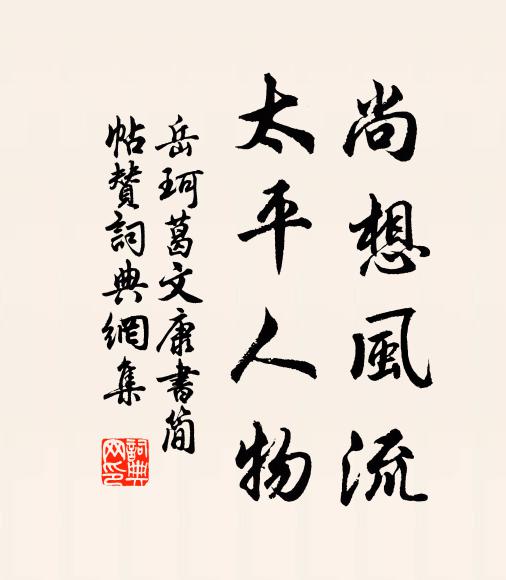 尚想風流
太平人物
岳珂葛文康書简
帖賛詞典網集
詞典網印